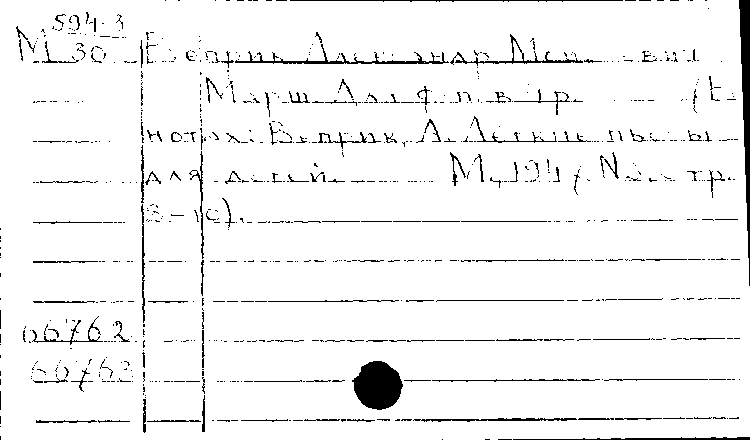 594-3
М 30 Веприк Александр Мои. -вич
Марш. Для ф.п. в 4 р. (В
нотах: Веприк, А. Легкие пьесы
для детей. М., 1947. №2. стр.
8-10).
66762
66763